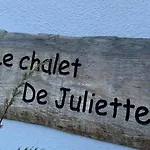 Le chalet
De Juliette